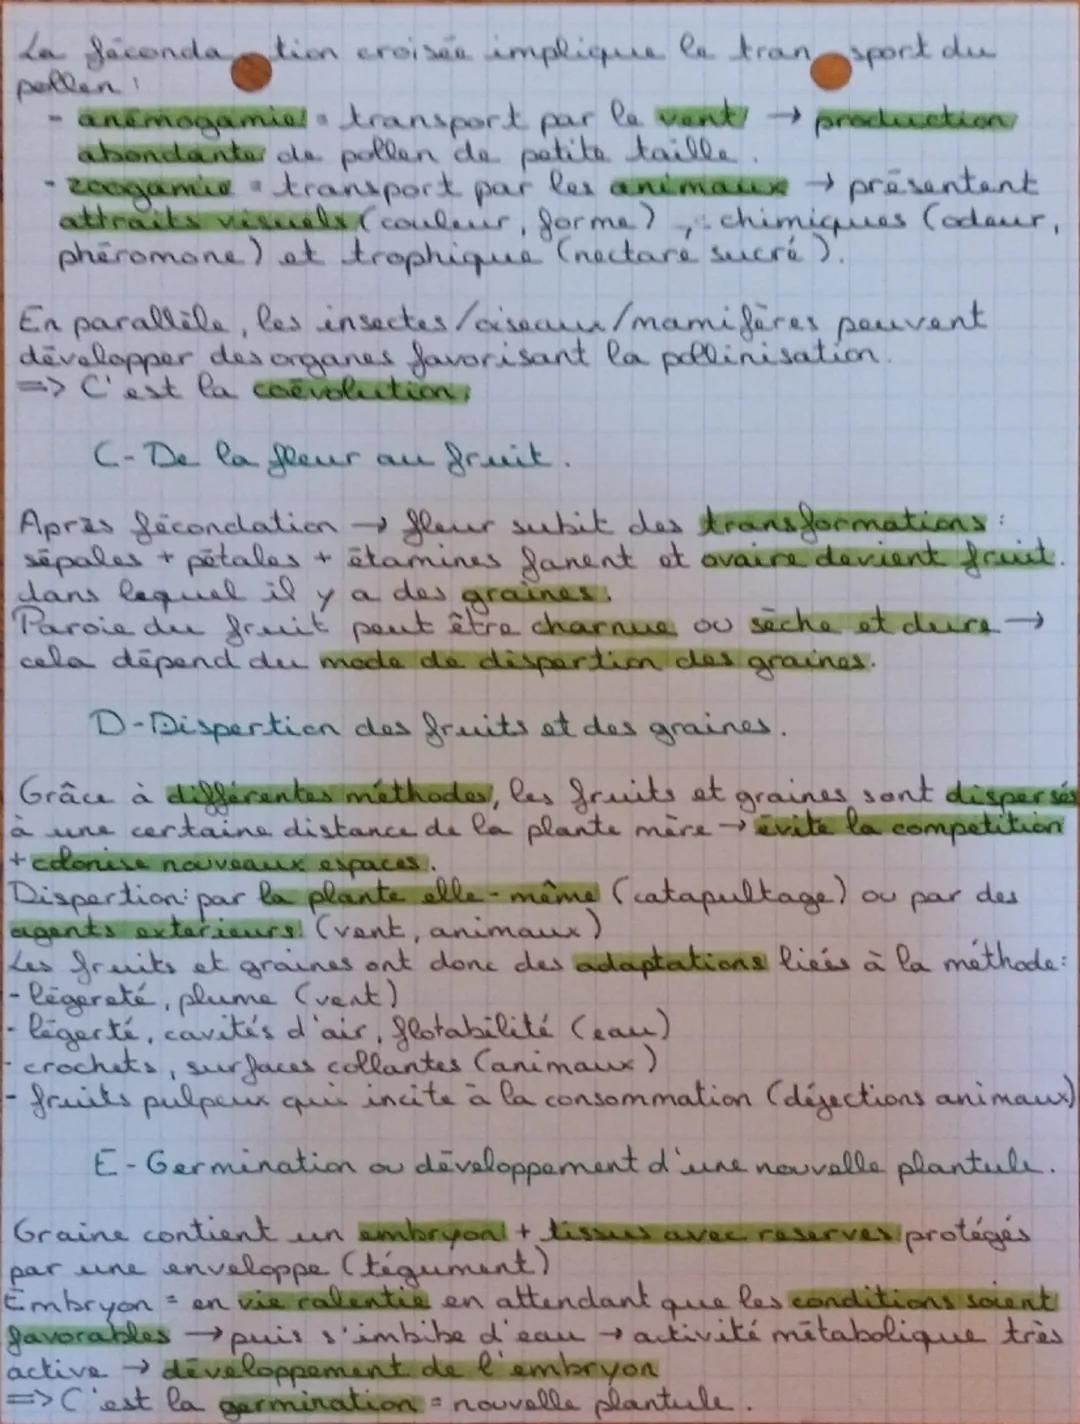 La féconda tion croisée implique le tran sport du
pollen :
- anémogamie = transport par le vent → production
abondante de pollen de petite taille.
- zoogamie = transport par les animaux → présentent
attraits visuels (couleur, forme), chimiques (odeur,
phéromone) et trophique (nectare sucré).
En parallèle, les insectes/oiseaux/mamifères peuvent
développer des organes favorisant la pollinisation.
=> C'est la coévolution.
C- De la fleur au fruit.
Après fécondation → fleur subit des transformations :
sépales + pétales + étamines fanent et ovaire devient fruit.
dans lequel il y a des graines.
Paroie du fruit peut être charnue ou sèche et dure →
cela dépend du mode de dispertion des graines.
D- Dispertion des fruits et des graines.
Grâce à différentes méthodes, les fruits et graines sont dispersés
à une certaine distance de la plante mère → évite la competition
+ colonise nouveaux espaces.
Dispertion: par la plante elle-même (catapultage) ou par des
agents exterieurs. (vent, animaux)
Les fruits et graines ont donc des adaptations liées à la méthode:
- légereté, plume (vent)
- légerté, cavités d'air, flotabilité (eau)
- crochets, surfaces collantes (animaux)
- fruits pulpeux qui incite à la consommation (déjections animaux)
E- Germination ou développement d'une nouvelle plantule.
Graine contient un embryon + tissus avec reserves protégés
par une enveloppe (tégument)
Embryon = en vie ralentie en attendant que les conditions soient
favorables → puis s'imbibe d'eau → activité métabolique très
active → développement de l'embryon
=> C'est la germination = nouvelle plantule.